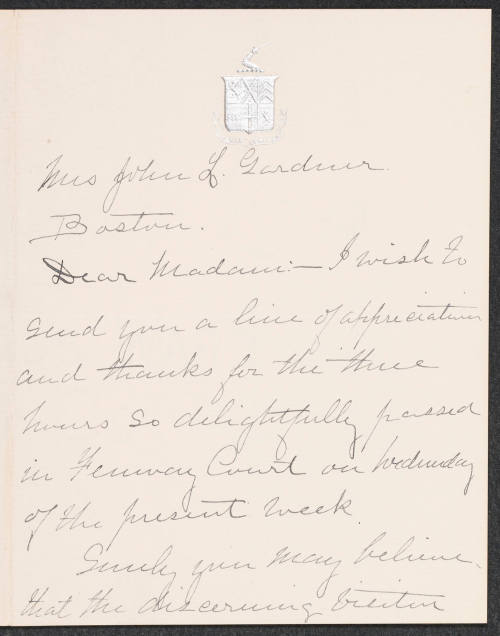 Mrs John L. Gardner.
Boston.
Dear Madam:— I wish to
send you a line of appreciation
and thanks for the three
hours so delightfully passed
in Fenway Court on Wednesday
of the present week
Surely you may believe
that the discerning visitor